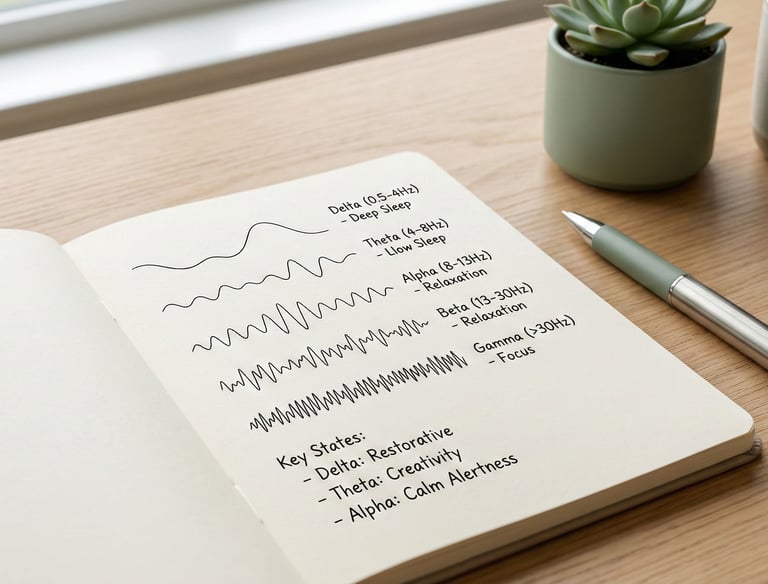 Delta (0.5-4Hz)
- Deep Sleep
Theta (4-8Hz)
- Llow Sleep
Alpha (8-13Hz)
- Relaxation
Beta (13-30Hz)
- Relaxation
Gamma (>30Hz)
- Focus
Key States:
- Delta: Restorative
- Theta: Creativity
- Alpha: Calm Alertness